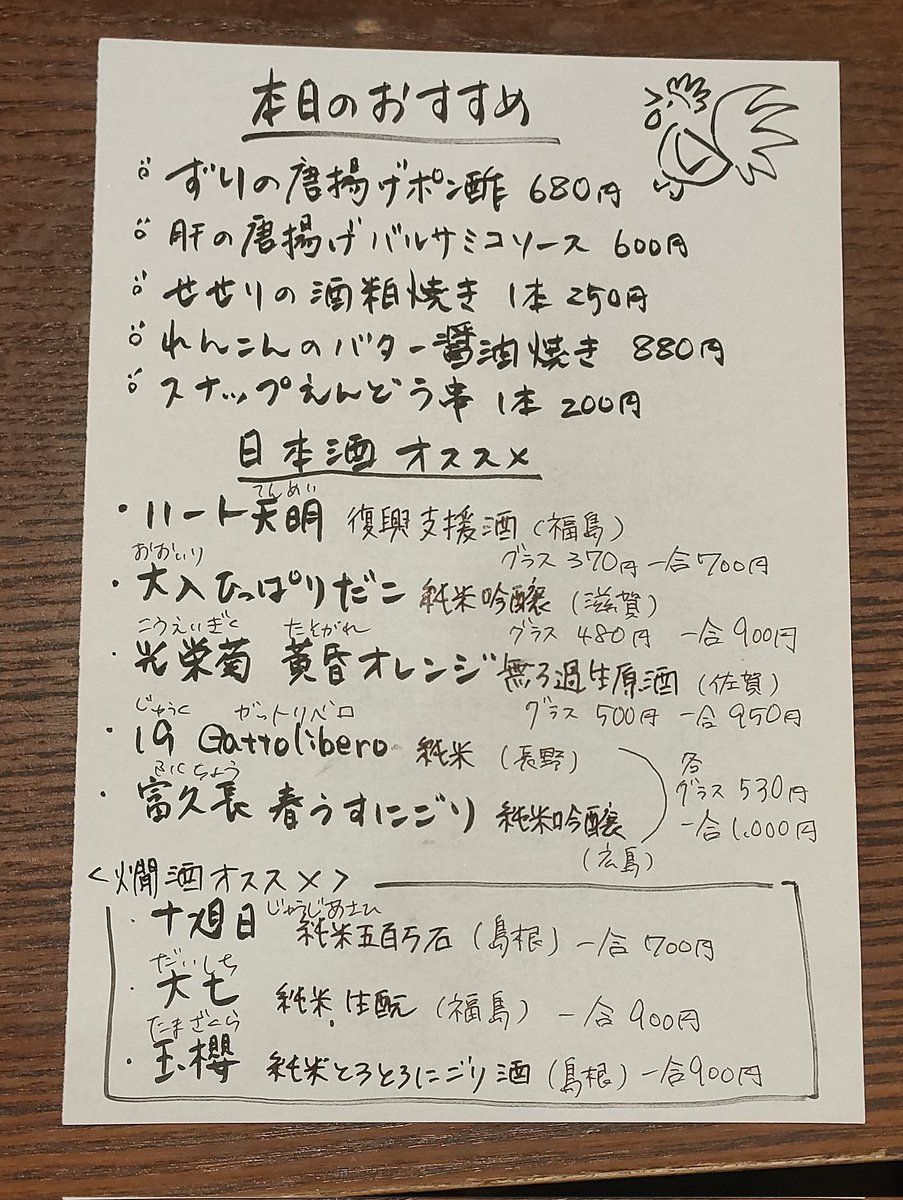 本日のおすすめ
ずりの唐揚げポン酢 680円
肝の唐揚げバルサミコソース 600円
せせりの酒粕焼き 1本 250円
れんこんのバター醤油焼き 880円
スナップえんどう串 1本 200円
日本酒オススメ
てんめい
・ハート天明 復興支援酒(福島)
グラス 370円 一合 700円
おおいり
・大入ひっぱりだこ 純米吟醸(滋賀)
グラス 480円 一合 900円
こうえいぎく たそがれ
・光栄菊 黄昏オレンジ 無ろ過生原酒(佐賀)
グラス 500円 一合 950円
じゅうく ガットリベロ
・19 Gattolibero 純米(長野)
ふくちょう
・富久長 春うすにごり 純米吟醸
(広島)
各
グラス 530円
一合 1,000円
<燗酒オススメ>
じゅうじあさひ
・十旭日 純米五百万石(島根) 一合 700円
だいしち
・大七 純米.生酛(福島) 一合 900円
たまざくら
・玉櫻 純米とろとろにごり酒(島根) 一合 900円